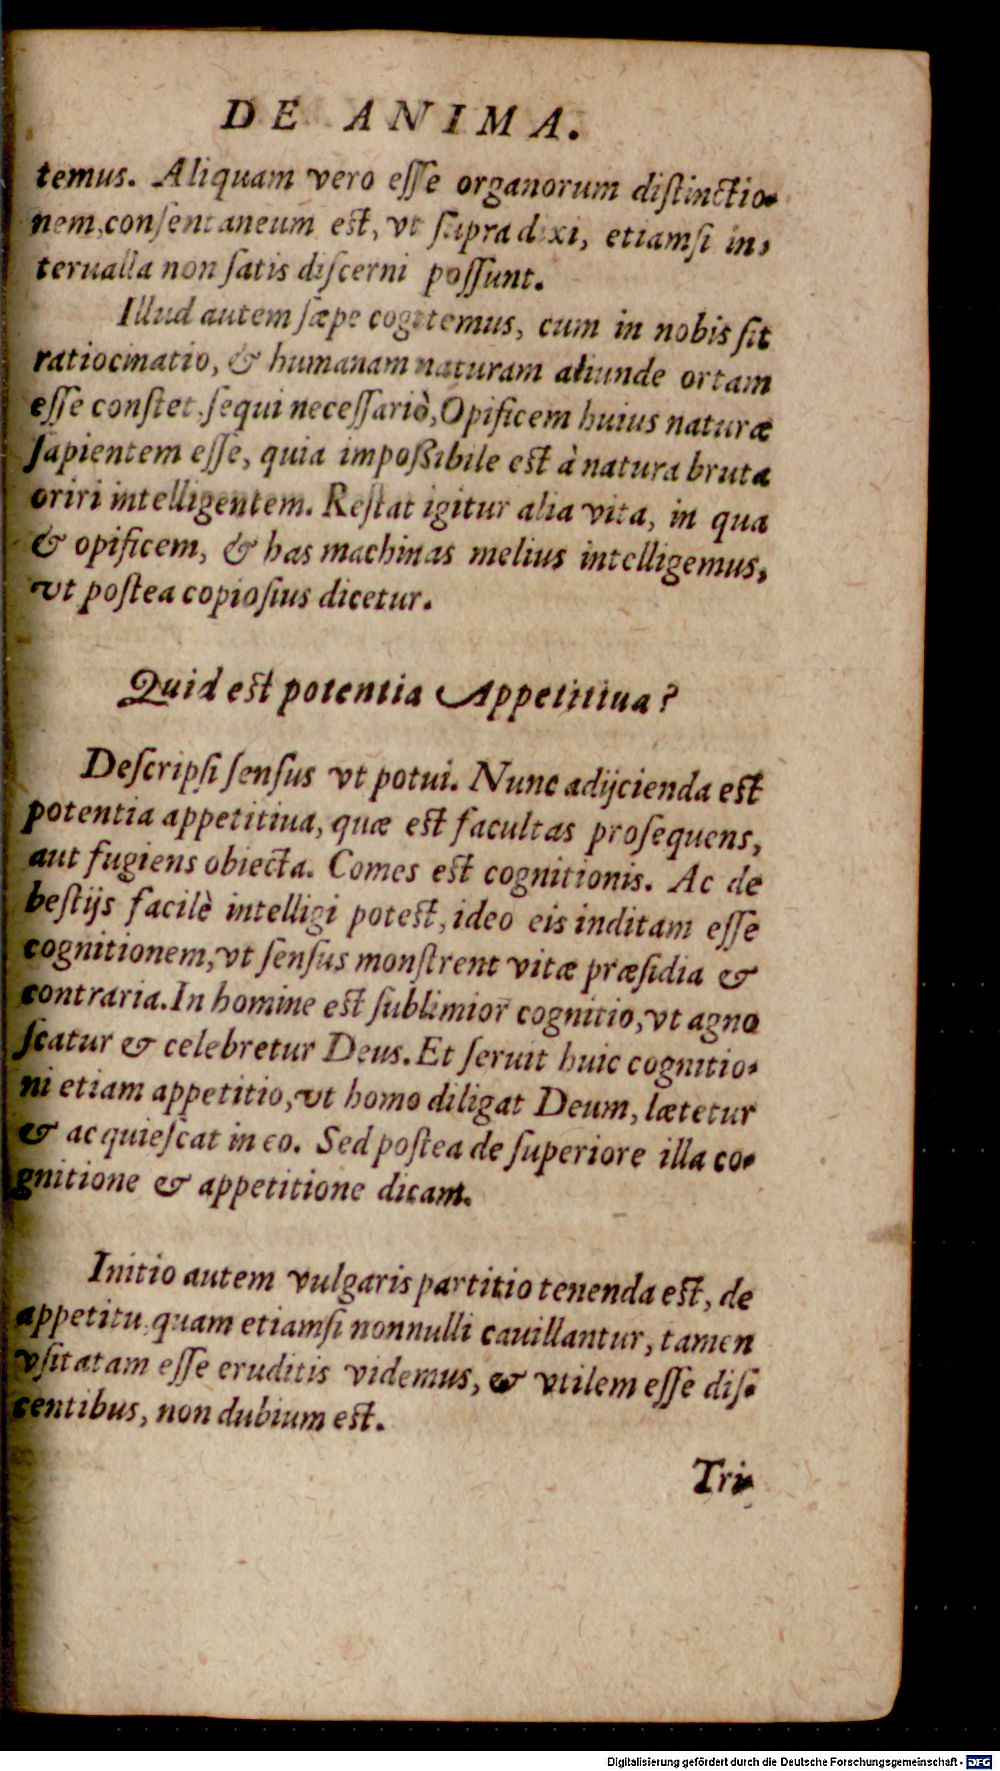 DE ANIMA.
temus. Aliquam vero eſſe organorum diſtinctio-
nem,conſentaneum eſt, vt ſupra dixi, etiamſi in-
terualla non ſatis diſcerni poſſunt.
Illud autem ſæpe cogitemus, cum in nobis ſit
ratiocinatio, & humanam naturam aliunde ortam
eſſe conſtet ſequi neceſſariò, Opificem huius naturæ
ſapientem eſſe, quia impoßibile eſt à natura bruta
oriri intelligentem. Reſtat igitur alia vita, in qua
& opificem, & has machinas melius intelligemus,
vt poſtea copioſius dicetur.
Quid eſt potentia Appetitiua?
Deſcripſi ſenſus vt potui. Nunc adijcienda eſt
potentia appetitiua, quæ eſt facultas proſequens,
aut fugiens obiecta. Comes eſt cognitionis. Ac de
beſtijs facilè intelligi poteſt, ideo eis inditam eſſe
cognitionem, vt ſenſus monſtrent vitæ præſidia &
contraria. In homine eſt ſublimior cognitio, vt agno
ſcatur & celebretur Deus. Et ſeruit huic cognitio-
ni etiam appetitio, vt homo diligat Deum, lætetur
& acquieſcat in eo. Sed poſtea de ſuperiore illa co-
gnitione & appetitione dicam.
Initio autem vulgaris partitio tenenda eſt, de
appetitu, quam etiamſi nonnulli cauillantur, tamen
vſitatam eſſe eruditis videmus, & vtilem eſſe diſ-
centibus, non dubium eſt.
Tri-
Digitalisierung gefördert durch die Deutsche Forschungsgemeinschaft - DFG